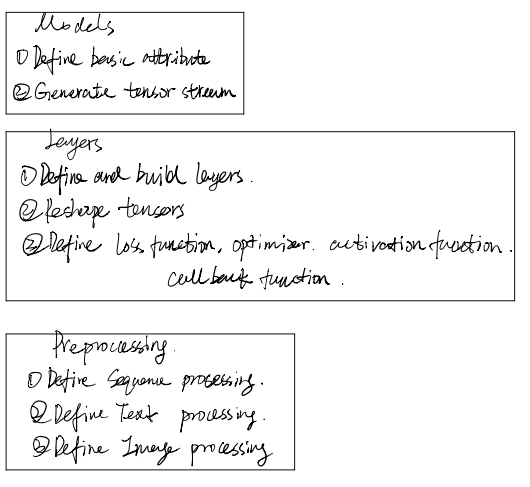 Models
① Define basic attribute
② Generate tensor stream
Layers
① Define and build layers.
② Reshape tensors
③ Define loss function, optimizer. activation function.
callback function.
Preprocessing.
① Define Sequence processing.
② Define Text processing.
③ Define Image processing